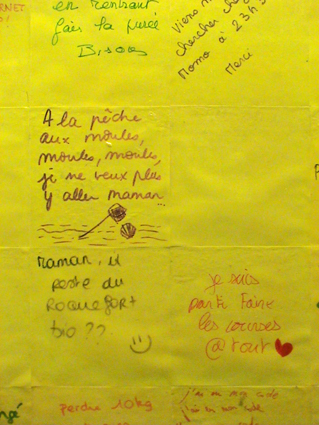 en rentrant
fais la purée
Bisous
Viens
chercher
Momo à 23h
Merci
A la pêche
aux moules,
moules, moules,
je ne veux plus
y aller maman...
Maman, il
reste du
Roquefort
bio ??
je suis
partie faire
les courses
@ tout
perdre 10kg